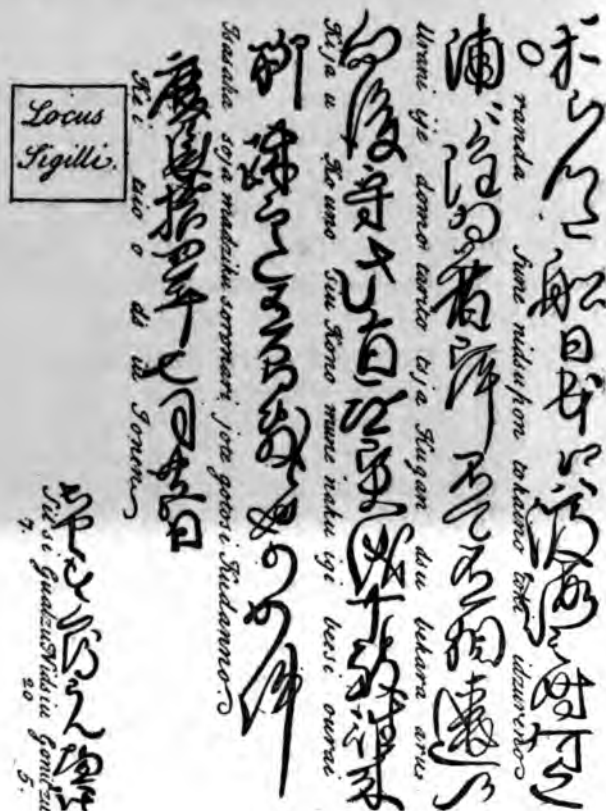 おらんた船日本江渡海之時何之
O randa fune nidsupon tokaino toki idzureno
浦ニ雖為着岸不可有相違候
Urani ije domo tarito tsja Kugan dsu bekara arus
向後守此旨無異儀可被致往来
Kija u Ko uno siu Kono mune naku igi beesi ourai
聊疎意有間敷候也仍如件
Isasaka soja madziku soronari, jote gotosi Kudanno
慶長拾四年七月廿五日
Kei tsio o ds iu Jonen
Locus
Sigilli.
Sitsi Guatzu Nidsiu Gonitzu
7. 20 5.